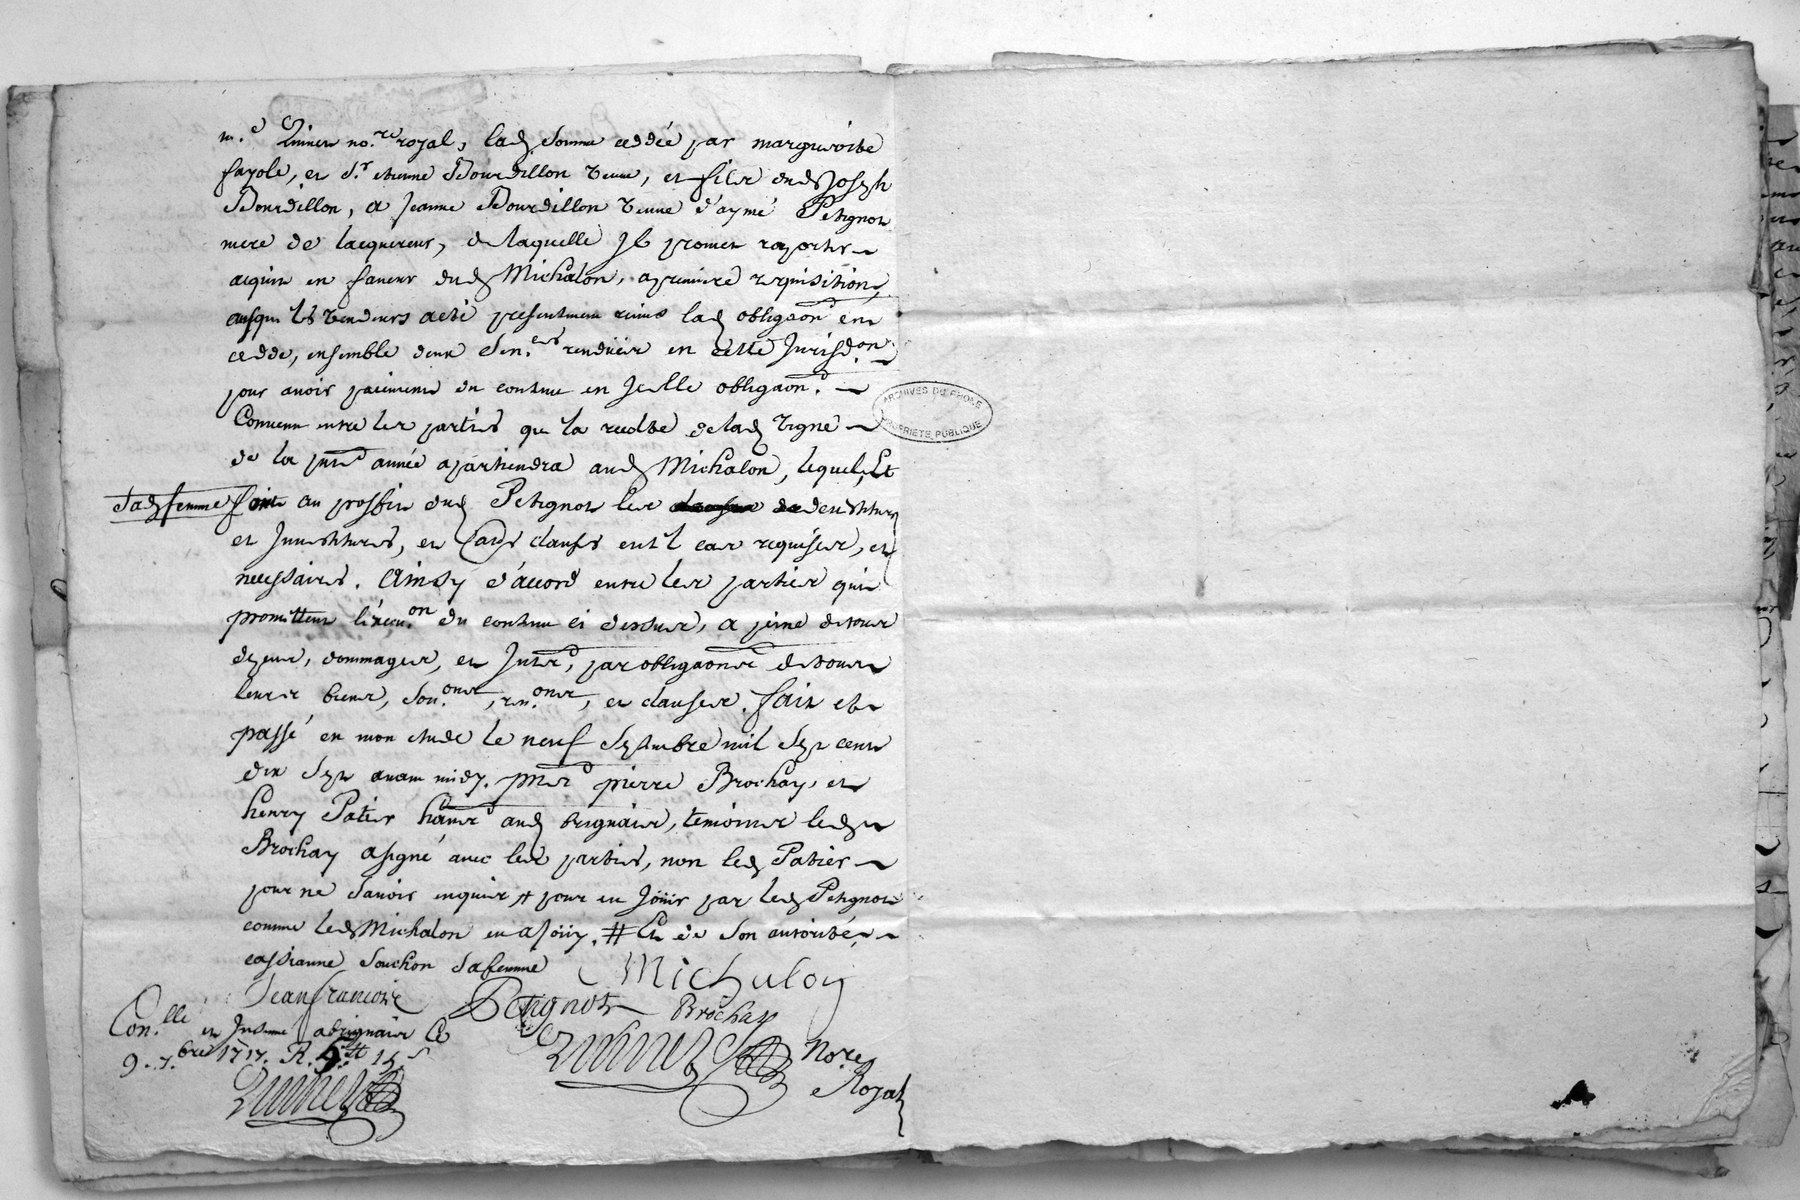 m.e Quiney no.re royal, lad. somme ceddée par marguerite
fayole, et s.r etienne Bourdillon veuve, et fils dud. Joseph
Bourdillon, a Jeanne Bourdillon veuve d'aymé Petignot
mere de lacquereur, de laquelle Il promet raporter
aquit en faveur dud. Michalon, a premiere requisition,
ausqu. les vendeurs acte presentement remis lad. obligaon en
cedde, ensemble deux sen.ces renduës en cette Jurisd.on
pour avoir paiement du contenu en Icelle obligaon.
Convenu entre les parties que la recolte de lad. vigne
de la pnte année apartiendra aud. Michalon, lequel, Et
sad. femme font au proffit dud. Petignot les devestitures
et Investitures, et autres clauses en tel cas requises, et
necessaires. Ainsy d'accord entre les parties qui
promettent l'execu.on du contenu ci dessus, a peine de tous
depens, dommages, et Inter., par obligaons de tous
leurs biens, sou.ons, ren.ons, et clauses. fait et
passé en mon etude le neuf septembre mil sept cent
dix sept avant midy. pnts pierre Brochay, et
henry Patier hants aud. brignais, temoins led.
Brochay a signé avec les parties, non led. Patier
pour ne savoir enquis # pour en Joüir par led. Petignot
comme led. Michalon en a Joüy. # Et de son autorité
cassianne Souchon sa femme
Michalon
Jean francois Petignot Brochay
Con.llé et Insinué a brignais le
9.e 7.bre 1717. R. 5tt 15s
Quiney
Quiney Nore.
Royal
ARCHIVES DU RHONE
PROPRIETE PUBLIQUE